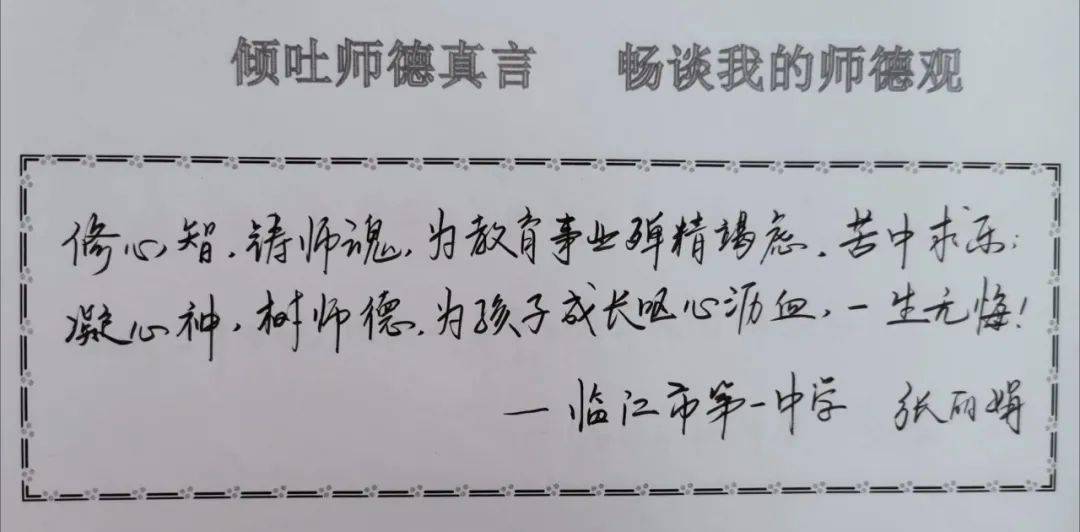 倾吐师德真言 畅谈我的师德观
修心智,铸师魂,为教育事业殚精竭虑,苦中求乐;
凝心神,树师德,为孩子成长呕心沥血,一生无悔!
—临江市第一中学 张丽娟